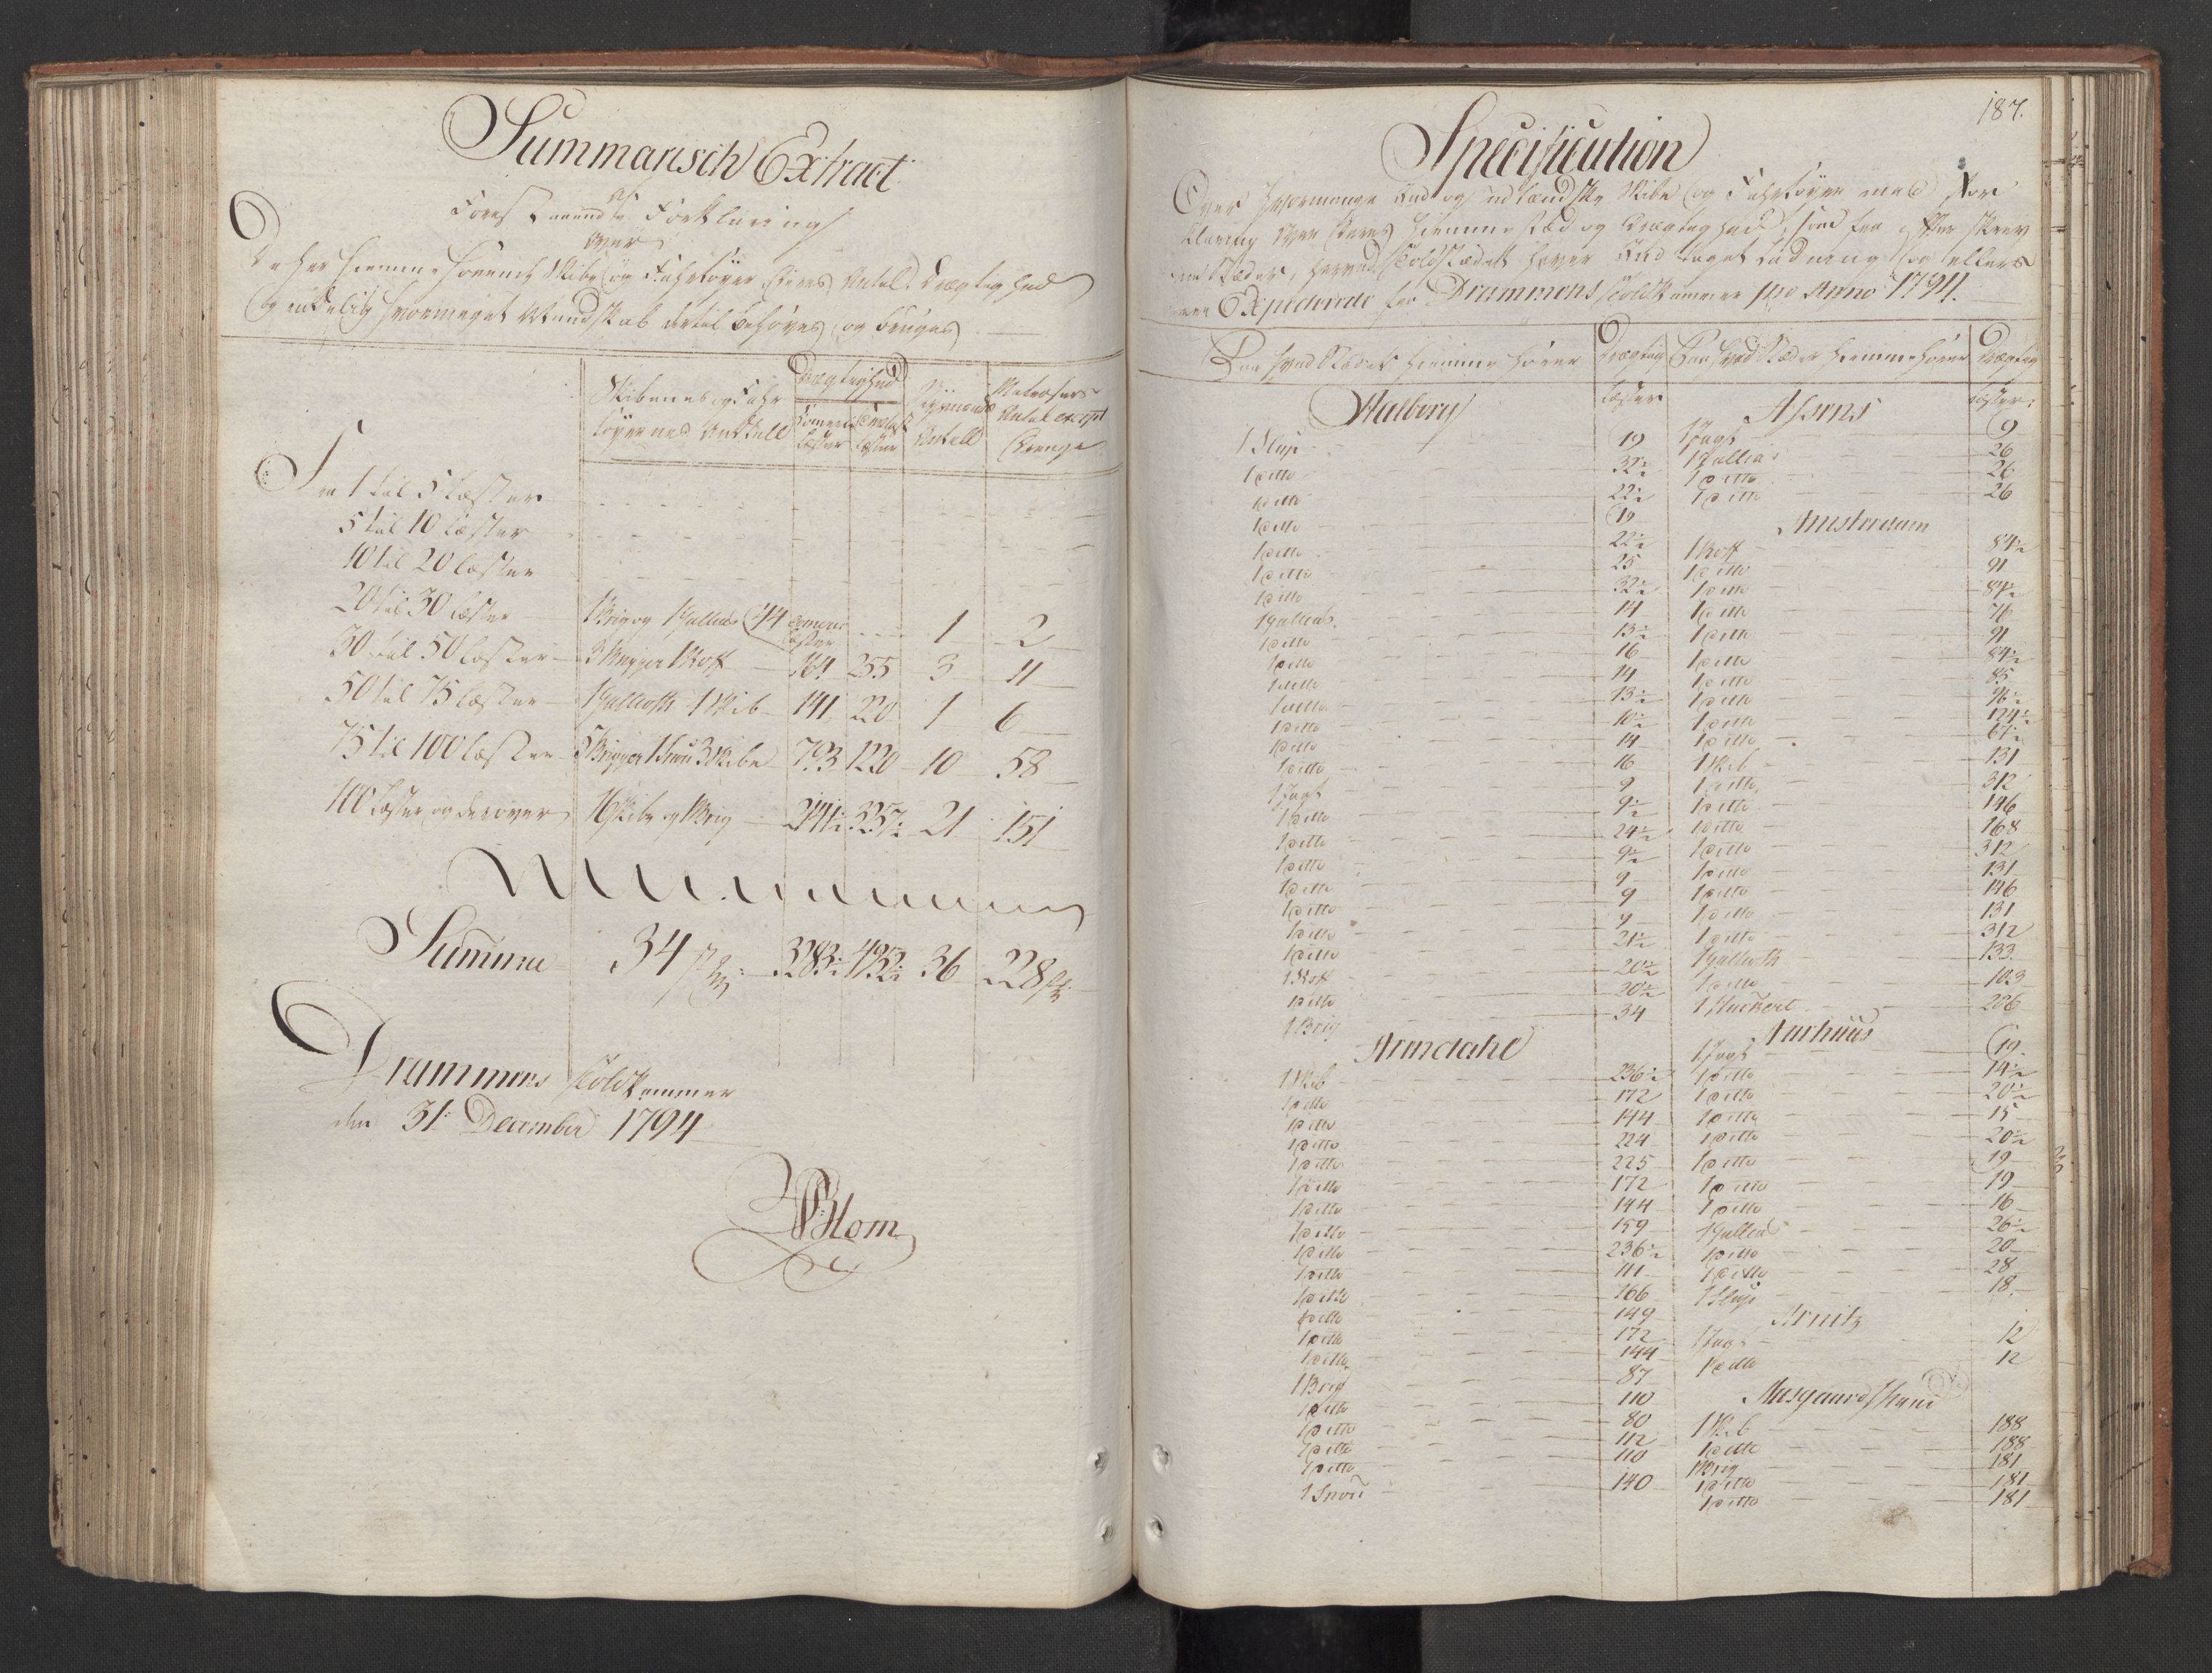 Summarisch Extract
af
Forestaaende Forklaring
over
De her hiemme hørende Skibe og Fahrtøyer deres Antal, Drægtighed
og endelig hvormeget Mandskab dertil behøves og bruges
Skibenes og Fahr
tøyernes Antall
Drægtighed
Comercie
Læster
Læster
Styrmænd
Antall
Matrosers
Antal except
Drenge
Fra 1 til 5 Læster
5 til 10 Læster
10 til 20 Læster
20 til 30 Læster 1 Brig og 1 Gallias 44 Comerce Læster 1 2
30 til 50 Læster 3 Brigger 1 Koff 164 255 3 11
50 til 75 Læster 1 Gallioth 1 Skib 141 220 1 6
75 til 100 Læster 5 Brigger 1 Snau 3 Skibe 793 1220 10 58
100 Læster og derover 16 Skibe og Brig 2141½ 3257½ 21 151
Summa 34 3283½ 4952½ 36 228
Drammens Toldkammer
den 31 December 1794
Blom
187.
Specification
Over hvormange Ind og udlændske Skibe og Fahrtøyer med For
klaring over deres Hiemme Stæd og Drægtighed, som fra efterskrev
ne Stæder, herved Toldstædet haver Indtaget Ladning og ellers
ere Expederede fra Drammens Toldkammer pro Anno 1794.
Paa hvad Stædet hiemme hører
Drægtig
Læster
Paa hvad Stæder hiemmehører
Drægtig
Læster
Aalborg
1 Slup 19
1 ditto 32½
1 ditto 22½
1 ditto 19
1 ditto 22½
1 ditto 25
1 ditto 32½
1 Gallias 14
1 ditto 13½
1 ditto 16
1 ditto 14
1 ditto 13½
1 ditto 10½
1 ditto 14
1 ditto 16
1 Jagt 9
1 ditto 9½
1 ditto 24½
1 ditto 9½
1 ditto 9
1 ditto 9
1 ditto 9
1 ditto 21½
1 Koff 20½
1 ditto 20½
1 Brig 34
Arndahl
1 Skib 236½
1 ditto 172
1 ditto 144
1 ditto 224
1 ditto 225
1 ditto 172
1 ditto 144
1 ditto 159
1 ditto 236½
1 ditto 111
1 ditto 166
1 ditto 149
1 ditto 172
1 ditto 144
1 Brig 87
1 ditto 110
1 ditto 80
1 ditto 112
1 ditto 110
1 Snau 140
Assens
1 Jagt 9
1 Gallias 26
1 ditto 26
1 ditto 26
Amsterdam
1 Koff 84½
1 ditto 91
1 ditto 84½
1 ditto 76
1 ditto 91
1 ditto 84½
1 ditto 85
1 ditto 96½
1 ditto 124½
1 ditto 67½
1 Skib 131
1 ditto 312
1 ditto 146
1 ditto 168
1 ditto 312
1 ditto 131
1 ditto 146
1 ditto 131
1 ditto 312
1 Gallioth 133
1 ditto 103
1 Huckert 206
Aarhuus
1 Jagt 19
1 ditto 14½
1 ditto 20½
1 ditto 15
1 ditto 20½
1 ditto 19
1 ditto 19
1 ditto 16
1 Gallias 26½
1 ditto 20
1 ditto 28
1 Slup 18
Arnitz
1 Jagt 12
1 ditto 12
Aasgaardstrand
1 Skib 188
1 ditto 188
1 Brig 181
1 ditto 181
1 ditto 181